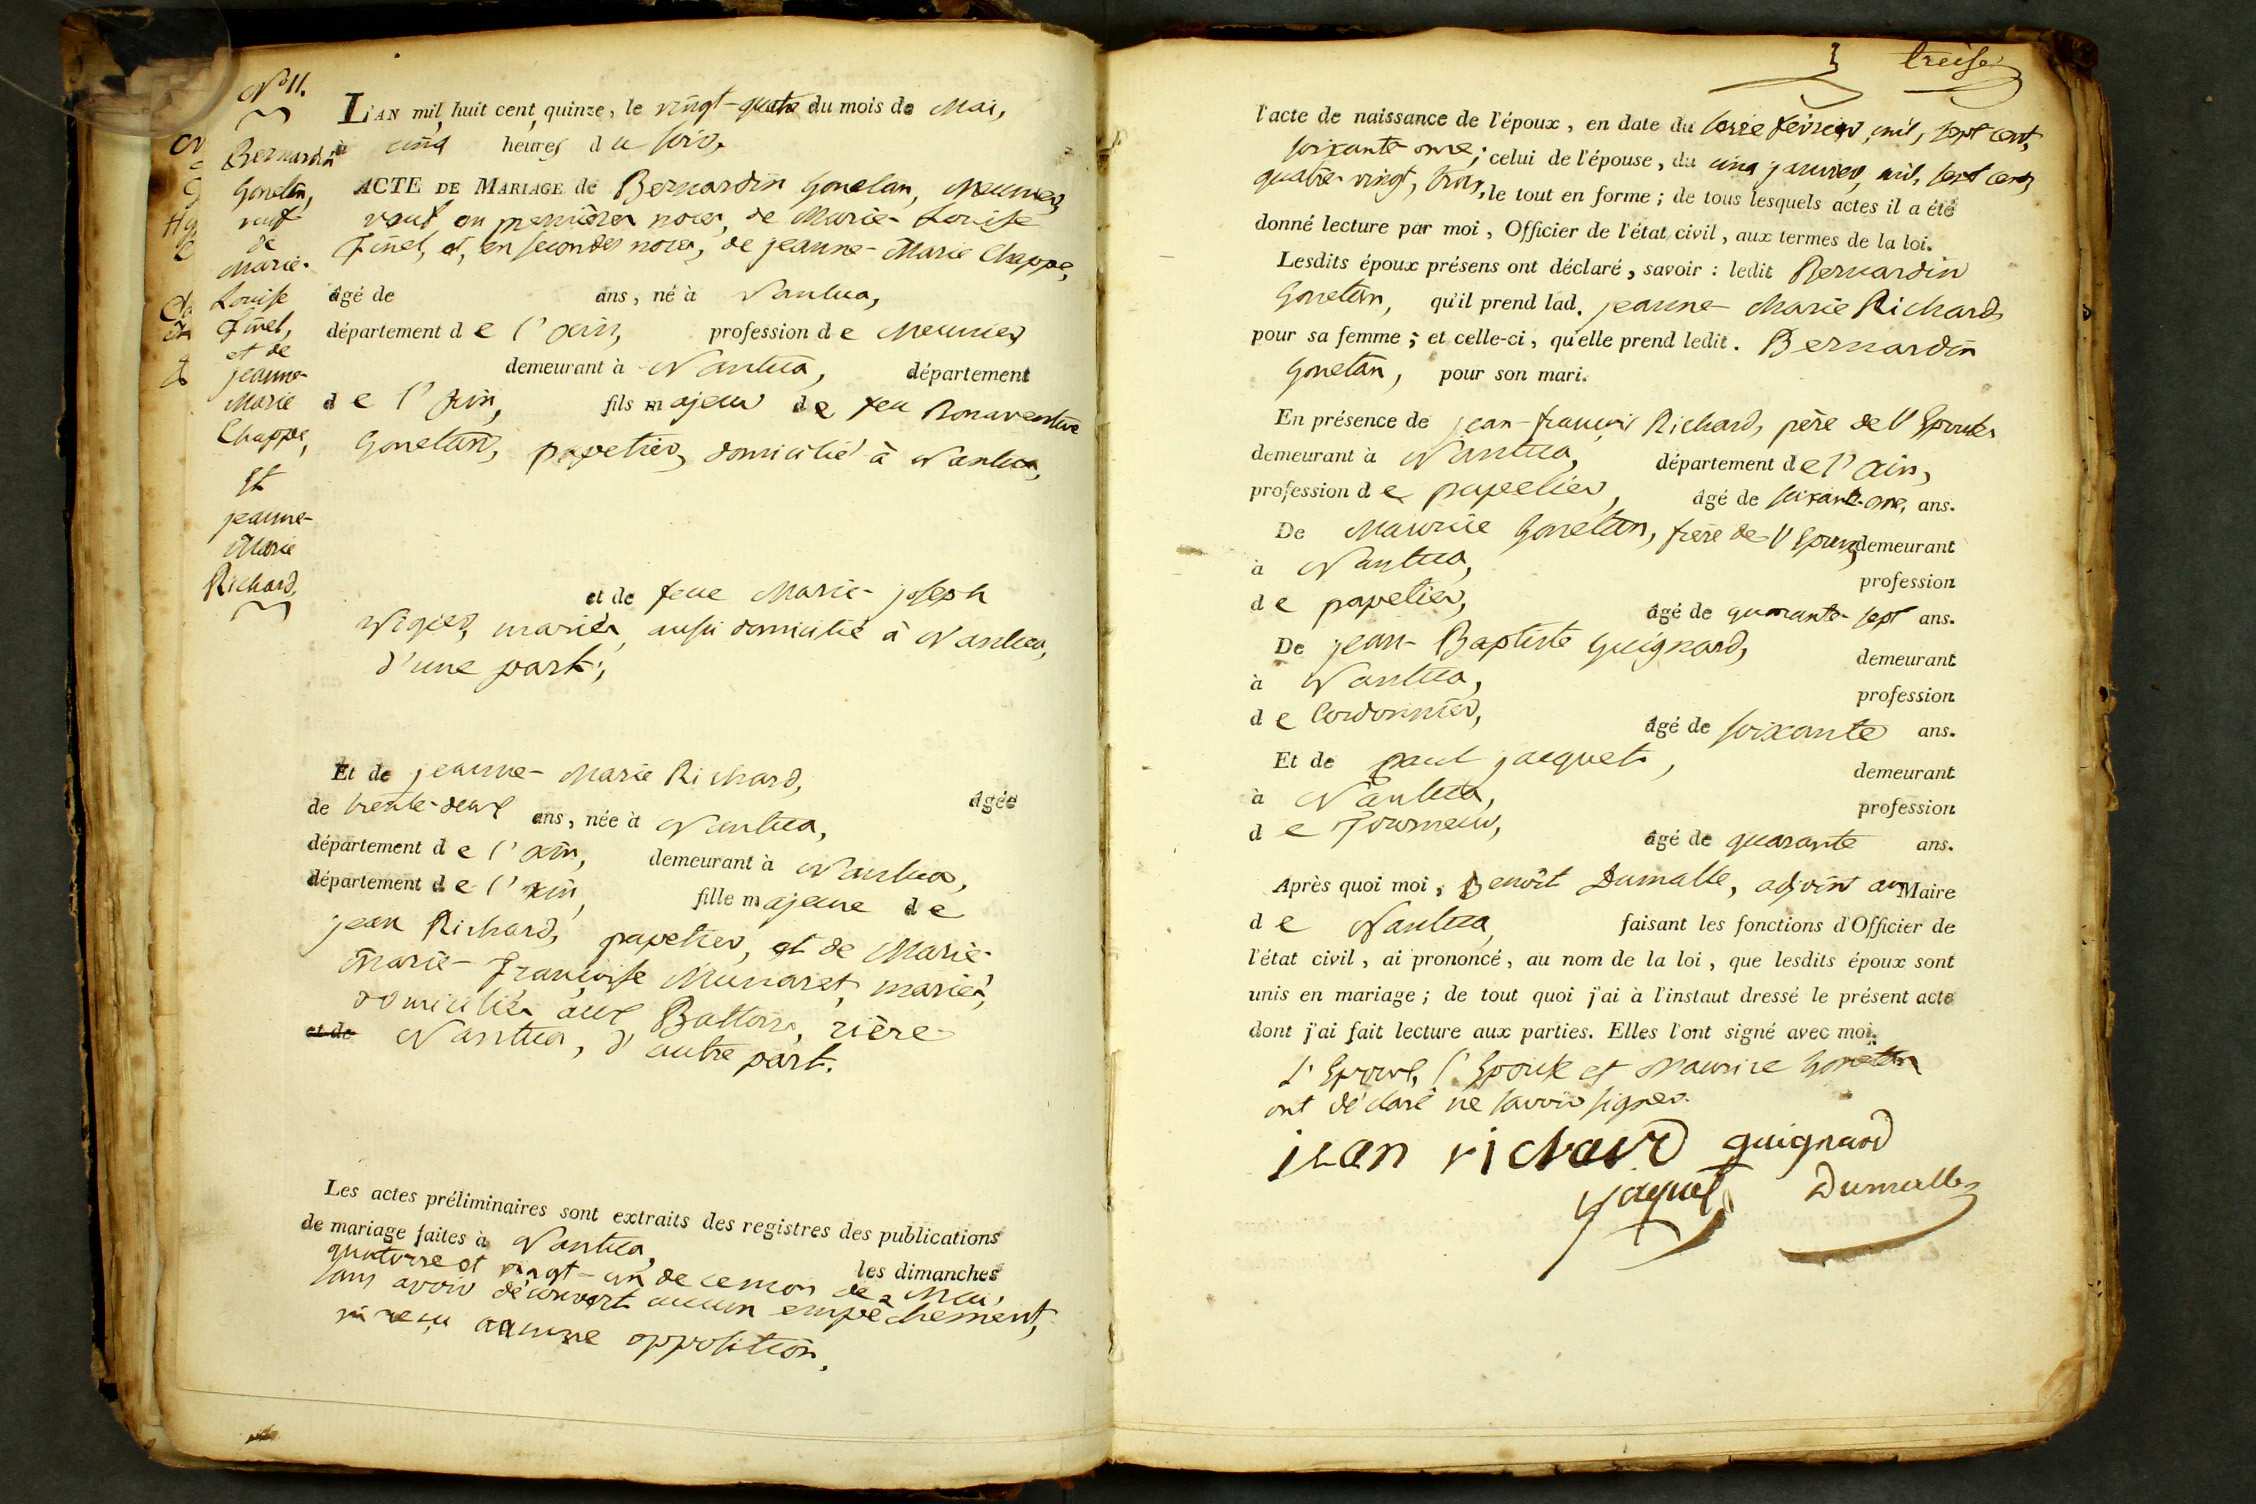 N.° 11.
Bernardin
Gonetan,
veuf
de
Marie-
Louise
Finet,
et de
jeanne-
Marie
Chappe,
Et
jeanne-
Marie
Richard,
L'AN mil huit cent quinze, le vingt-quatre du mois de Mai,
à cinq heures du soir,
ACTE DE MARIAGE de Bernardin Gonetan, Meunier,
veuf, en premières noces, de Marie-Louise
Finet, et, en secondes noces, de jeanne-Marie Chappe,
âgé de ans, né à Nantua,
département de l'ain, profession de Meunier,
demeurant à Nantua, département
de l'ain, fils majeur de feu Bonaventure
Gonetan, papetier, domicilié à Nantua,
et de feue Marie-joseph
mariés, aussi domicilié à Nantua,
d'une part;
Et de jeanne-Marie Richard, âgée
de trente-deux ans, née à Nantua,
département de l'ain, demeurant à Nantua,
département de l'ain, fille majeure de
jean Richard, papetier, et de Marie-
marie-françoise Munaret, mariés,
domiciliés aux Battoirs, rière-
et de Nantua, d'autre part.
Les actes préliminaires sont extraits des registres des publications
de mariage faites à Nantua, les dimanches
quatorze et vingt-un de ce mois de Mai,
sans avoir découvert aucun empêchement,
ni reçu aucune opposition.
treise
l'acte de naissance de l'époux, en date du février, mil, sept cent,
soixante-onze; celui de l'épouse, du cinq janvier, mil, sept cent,
quatre-vingt, trois, le tout en forme; de tous lesquels actes il a été
donné lecture par moi, Officier de l'état civil, aux termes de la loi.
Lesdits époux présens ont déclaré, savoir: ledit Bernardin
Gonetan, qu'il prend lad. jeanne-Marie Richard,
pour sa femme; et celle-ci, qu'elle prend ledit. Bernardin
Gonetan, pour son mari.
En présence de jean-françois Richard, père de l'Epouse,
demeurant à Nantua, département de l'ain,
profession de papetier, âgé de soixante-onze, ans.
De Maurice Gonetan, frère de l'Epoux, demeurant
à Nantua, profession
de papetier, âgé de quarante-sept ans.
De jean-Baptiste Guignard, demeurant
à Nantua, profession
de Cordonnier, âgé de soixante ans.
Et de paul jacquet, demeurant
à Nantua, profession
de Tourneur, âgé de quarante ans.
Après quoi moi, Benoît Dumalle, adjoint au Maire
de Nantua, faisant les fonctions d'Officier de
l'état civil, ai prononcé, au nom de la loi, que lesdits époux sont
unis en mariage; de tout quoi j'ai à l'instaut dressé le présent acte
dont j'ai fait lecture aux parties. Elles l'ont signé avec moi.
L'Epoux, l'Epouse et Maurice Gonetan
ont déclaré ne savoir signer.
jean richard guignard
jaquet Dumalle